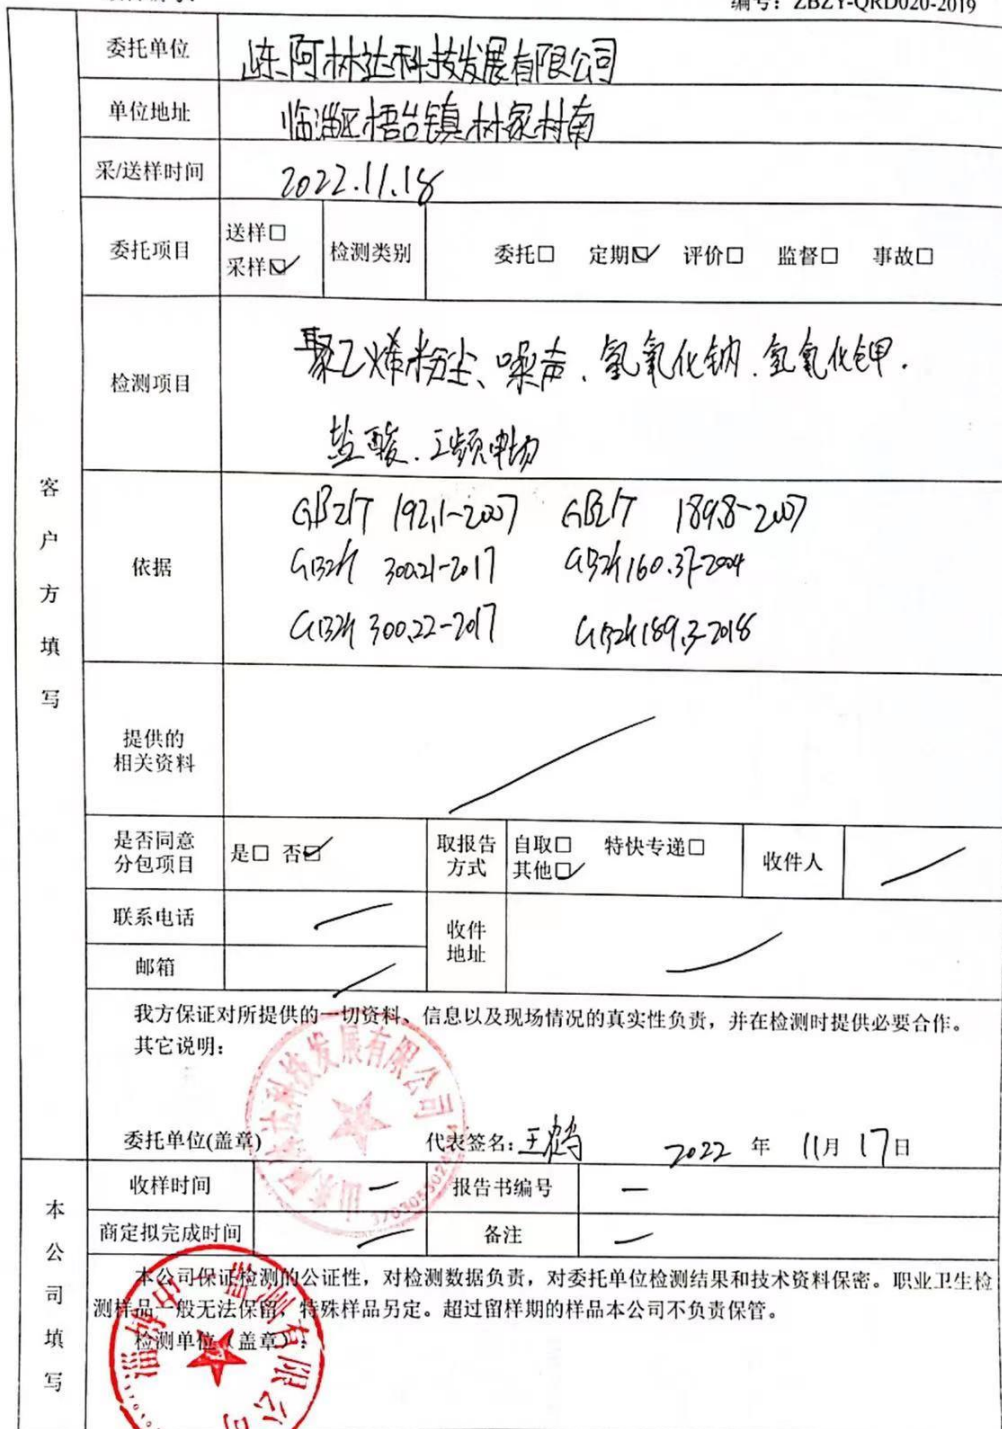 编号：ZBZY-QRD020-2019
委托单位 山东阿林达科技发展有限公司
单位地址 临淄区梧台镇林家村南
采/送样时间 2022.11.18
委托项目 送样□ 采样☑ 检测类别 委托□ 定期☑ 评价□ 监督□ 事故□
检测项目 聚乙烯粉尘、噪声、氢氧化钠、氢氧化钾、
盐酸、工频电场
依据 GBZ/T 192.1-2007 GBZ/T 189.8-2007
GBZ/T 300.21-2017 GBZ/T 160.37-2004
GBZ/T 300.22-2017 GBZ/T 189.3-2018
客户方填写
提供的
相关资料
是否同意
分包项目 是□ 否☑ 取报告
方式 自取□ 特快专递□
其他☑ 收件人
联系电话
收件
地址
邮箱
我方保证对所提供的一切资料、信息以及现场情况的真实性负责，并在检测时提供必要合作。
其它说明：
委托单位(盖章) 代表签名：王鹤 2022 年 11月 17日
收样时间 — 报告书编号 —
商定拟完成时间 — 备注 —
本公司填写
本公司保证检测的公证性，对检测数据负责，对委托单位检测结果和技术资料保密。职业卫生检
测样品一般无法保留，特殊样品另定。超过留样期的样品本公司不负责保管。
检测单位（盖章）：